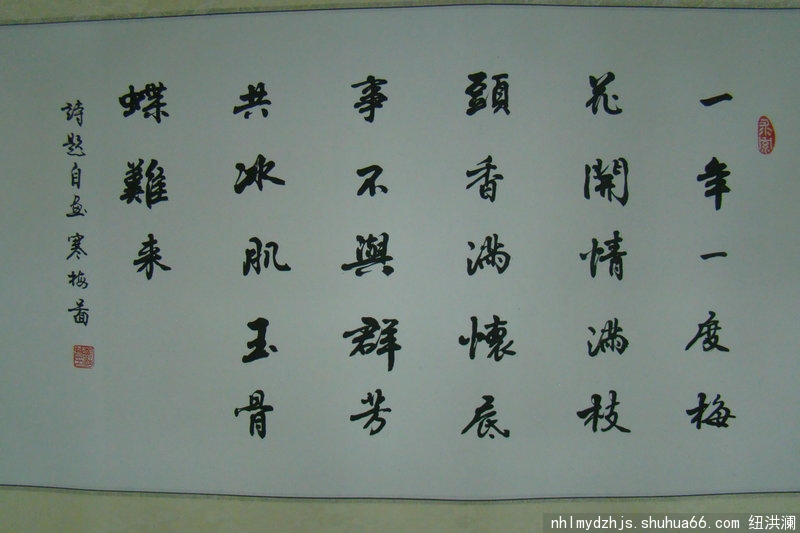 一年一度梅
花開情满枝
頭香满懷底
事不與群芳
共冰肌玉骨
蝶難来
詩題自画寒梅圖
nhlmydzhjs.shuhua66.com 纽洪澜